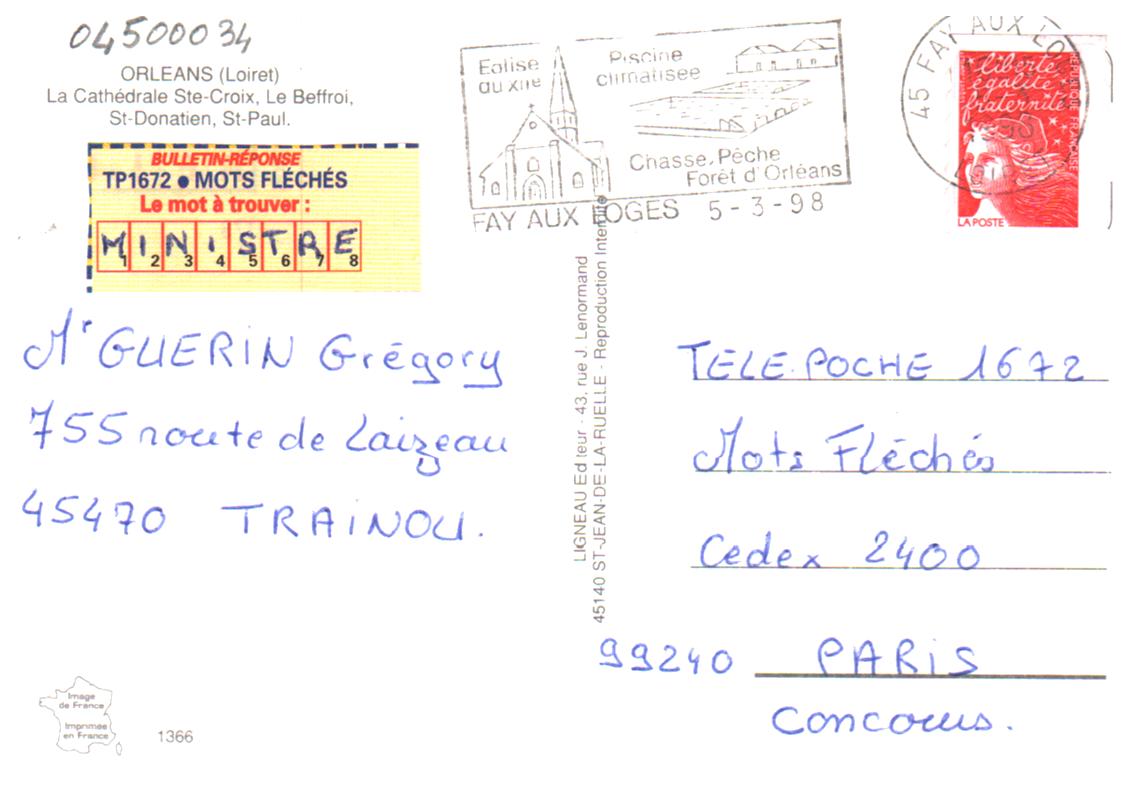 04500034
ORLEANS (Loiret)
La Cathédrale Ste-Croix, Le Beffroi,
St-Donatien, St-Paul.
BULLETIN-RÉPONSE
TP1672 ● MOTS FLÉCHÉS
Le mot à trouver :
MINISTRE
1 2 3 4 5 6 7 8
Mr GUERIN Grégory
755 route de Laizeau
45470 TRAiNOU.
Image
de France
Imprimée
en France
1366
Eglise
du XIIe
Piscine
climatisée
Chasse, Pêche
Forêt d'Orléans
FAY AUX LOGES 5-3-98
45 FAY AUX LO
liberté
égalité
fraternité
RÉPUBLIQUE FRANÇAISE
LA POSTE
LIGNEAU Editeur - 43, rue J. Lenormand
45140 ST-JEAN-DE-LA-RUELLE - Reproduction Interdite
TELE.POCHE 1672
Mots Fléchés
Cedex 2400
99240 PARiS
Concours.